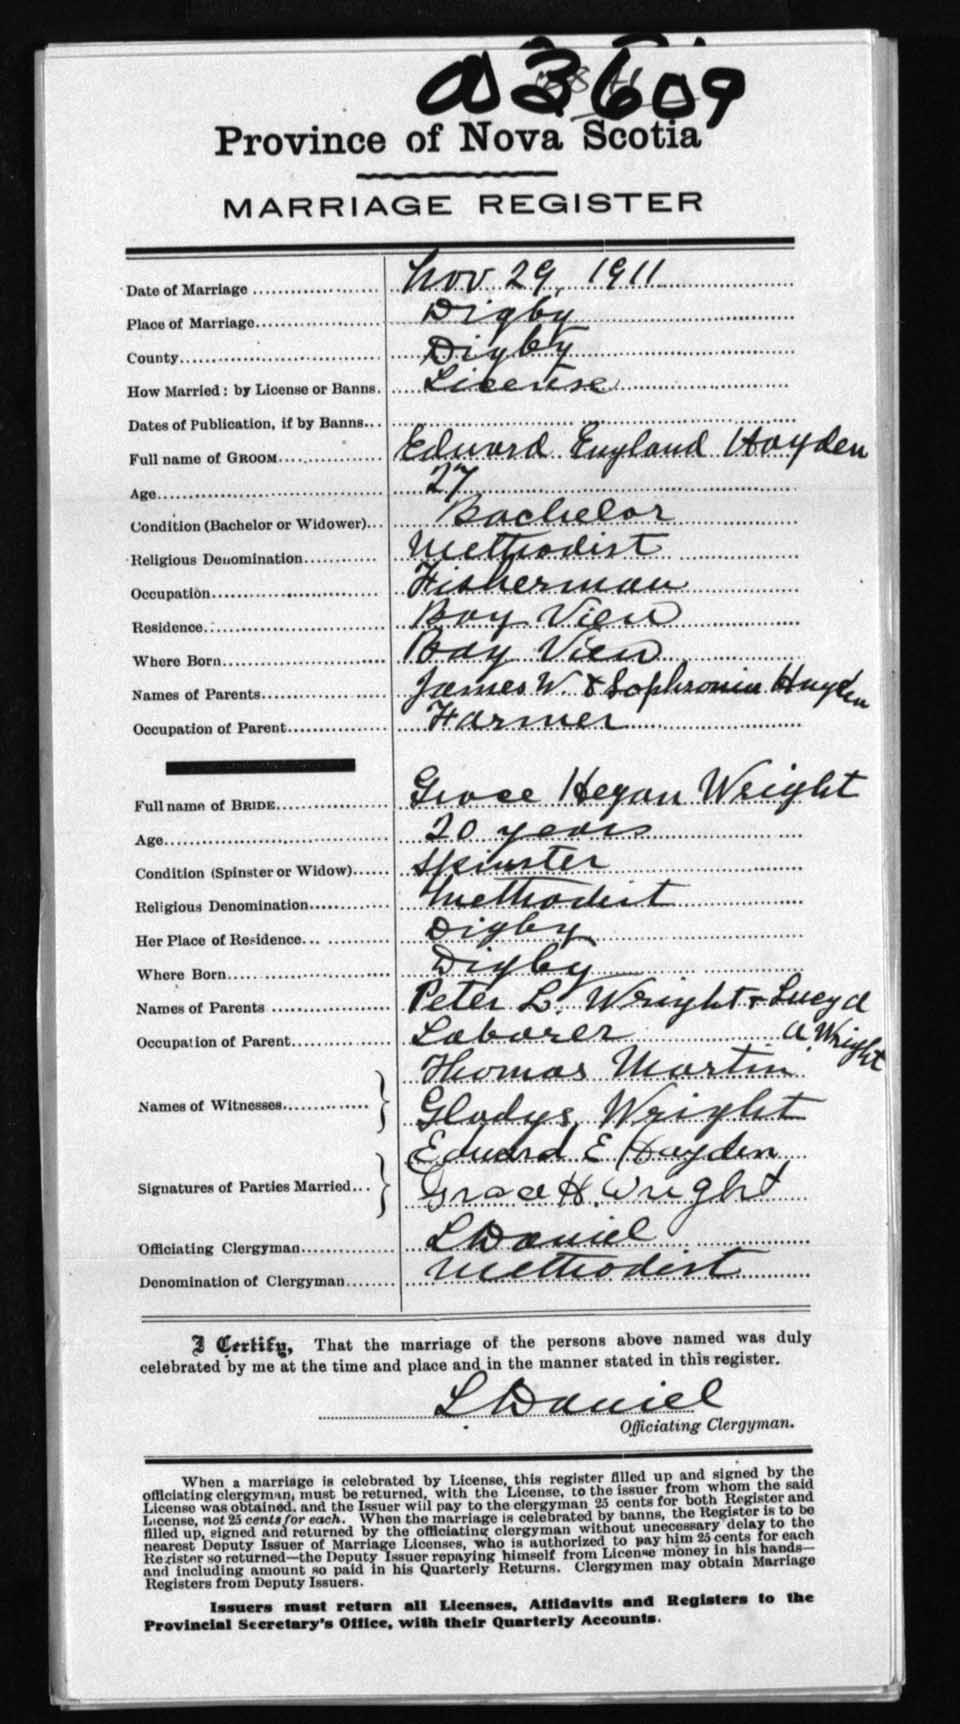 a 3609
Province of Nova Scotia
MARRIAGE REGISTER
Date of Marriage Nov 29, 1911
Place of Marriage Digby
County Digby
How Married: by License or Banns. License
Dates of Publication, if by Banns
Full name of GROOM Edward England Hayden
Age 27
Condition (Bachelor or Widower) Bachelor
Religious Denomination Methodist
Occupation Fisherman
Residence Bay View
Where Born Bay View
Names of Parents James W. & Sophronia Hayden
Occupation of Parent Farmer
Full name of BRIDE Grace Hegan Wright
Age 20 years
Condition (Spinster or Widow) Spinster
Religious Denomination Methodist
Her Place of Residence Digby
Where Born Digby
Names of Parents Peter L. Wright & Lucy A
Occupation of Parent Laborer A. Wright
Thomas Martin
Names of Witnesses
Gladys Wright
Edward E Hayden
Signatures of Parties Married
Grace H. Wright
Officiating Clergyman L Daniel
Denomination of Clergyman Methodist
I Certify, That the marriage of the persons above named was duly
celebrated by me at the time and place and in the manner stated in this register.
L Daniel
Officiating Clergyman.
When a marriage is celebrated by License, this register filled up and signed by the
officiating clergyman, must be returned, with the License, to the issuer from whom the said
License was obtained, and the Issuer will pay to the clergyman 25 cents for both Register and
License, not 25 cents for each. When the marriage is celebrated by banns, the Register is to be
filled up, signed and returned by the officiating clergyman without unnecessary delay to the
nearest Deputy Issuer of Marriage Licenses, who is authorized to pay him 25 cents for each
Register so returned—the Deputy Issuer repaying himself from License money in his hands—
and including amount so paid in his Quarterly Returns. Clergymen may obtain Marriage
Registers from Deputy Issuers.
Issuers must return all Licenses, Affidavits and Registers to the
Provincial Secretary's Office, with their Quarterly Accounts.